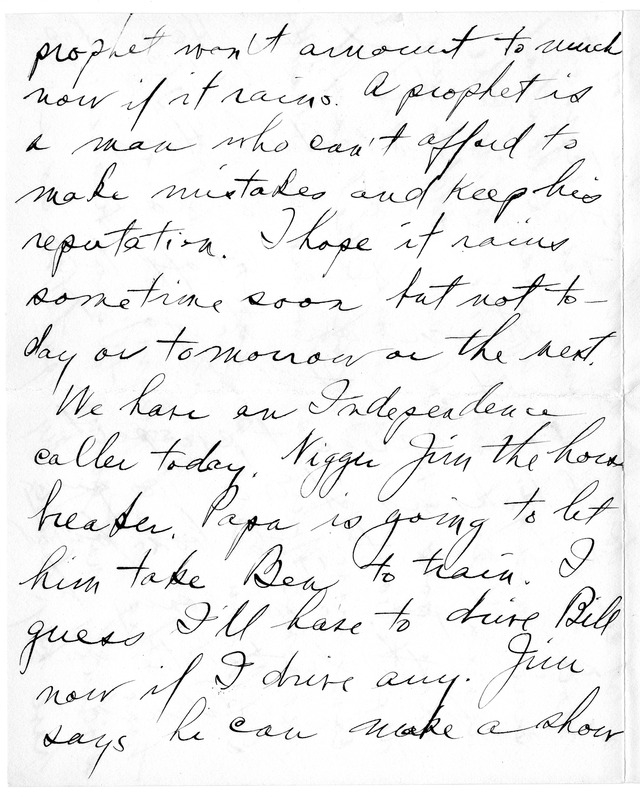 prophet won't amount to much
now if it rains. A prophet is
a man who can't afford to
make mistakes and keep his
reputation. I hope it rains
sometime soon but not to-
day or tomorrow or the next.
We have an Independence
caller today. Nigger Jim the horse
breaker. Papa is going to let
him take Ben to train. I
guess I'll have to drive Bill
now if I drive any. Jim
says he can make a show